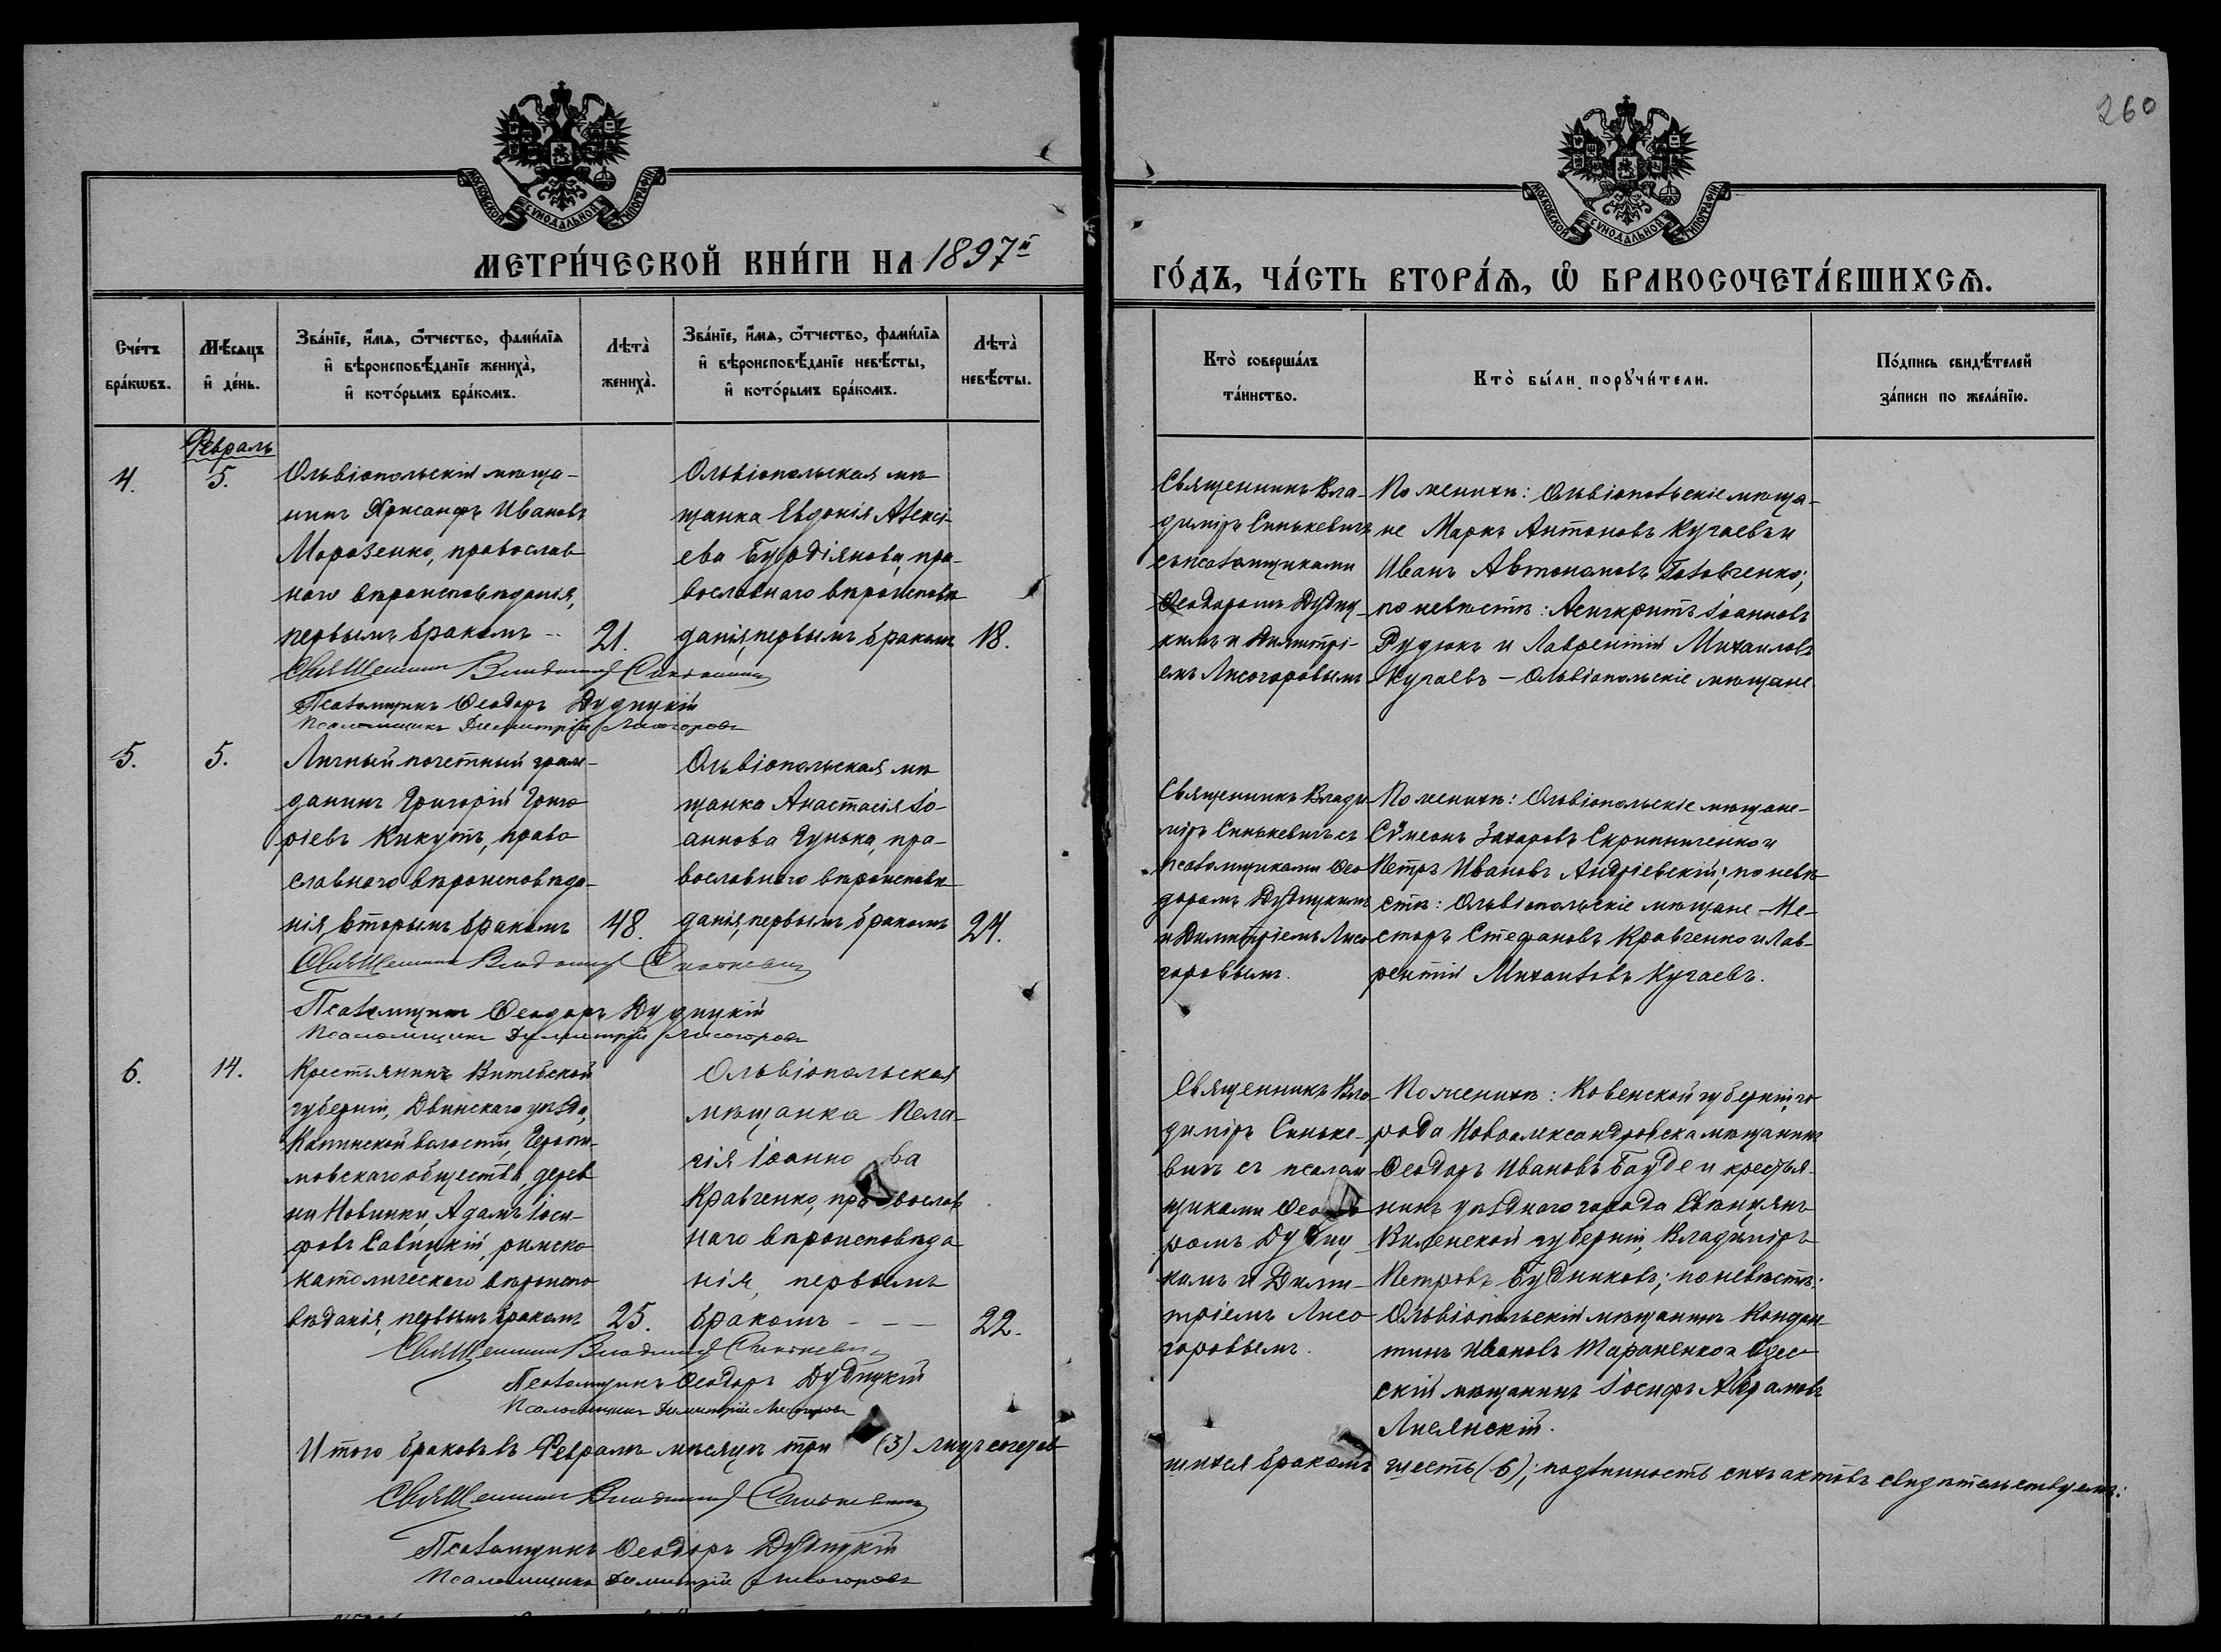 260
МОСКОВСКОЙ СѴНОДАЛЬНОЙ ТИПОГРАФІИ
МОСКОВСКОЙ СѴНОДАЛЬНОЙ ТИПОГРАФІИ
МЕТРИ́ЧЕСКОЙ КНИ́ГИ НА 1897й
ГО́ДЪ, ЧА́СТЬ ВТОРА́Ѧ, Ѽ БРАКОСОЧЕТА́ВШИХСѦ.
Сче́тъ
бра́кωвъ.
Мѣ́сяцъ
и҆ де́нь.
Зва́нїе, и҆́мѧ, ѻ҆́тчество, фами́лїѧ
и҆ вѣроисповѣ́данїе жениха̀,
и҆ кото́рымъ бра́комъ.
Лѣта̀
жениха̀.
Зва́нїе, и҆́мѧ, ѻ҆́тчество, фами́лїѧ
и҆ вѣроисповѣ́данїе невѣ́сты,
и҆ кото́рымъ бра́комъ.
Лѣта̀
невѣ́сты.
Кто̀ соверша́лъ
та́инство.
Кто̀ бы́ли порꙋчи́тели.
По́дпись свидѣ́телей
за́писи по жела́нїю.
Февраль
4.
5.
Ольвіопольскій мѣща-
нинъ Хрисанфъ Ивановъ
Морозенко, православ
наго вѣроисповѣданія,
первымъ бракомъ --
21.
Ольвіопольская мѣ
щанка Евдокія Алексі-
ева Бурдіянова, пра-
вославнаго вѣроисповѣ
данія, первымъ бракомъ
18.
Священникъ Вла-
диміръ Синькевичъ
съ псаломщиками
Ѳеодоромъ Дудниц-
кимъ и Димитрі-
емъ Лисогоровымъ
По женихѣ: Ольвіопольскіе мѣща-
не Маркъ Антоновъ Кугаевъ и
Иванъ Автономовъ Головченко;
по невѣстѣ: Асигкритъ Іоанновъ
Рудюкъ и Лаврентій Михаиловъ
Кугаевъ - Ольвіопольскіе мѣщане.
Священникъ Владиміръ Синькевичъ
Псаломщикъ Ѳеодоръ Дудницкій
Псаломщикъ Димитрій Лисогоровъ
5.
5.
Личный почетный граж-
данинъ Григорій Григо
ріевъ Кикутъ, право
славнаго вѣроисповѣда-
нія, вторымъ бракомъ
48.
Ольвіопольская мѣ
щанка Анастасія Іо-
аннова Гунька, пра-
вославнаго вѣроисповѣ
данія, первымъ бракомъ
24.
Священникъ Влади
міръ Синькевичъ съ
псаломщиками Ѳео
доромъ Дудницкимъ
и Димитріемъ Лисо
горовымъ.
По женихѣ: Ольвіопольскіе мѣщане-
Сѵмеонъ Захаровъ Скрипниченко и
Петръ Ивановъ Андріевскій; по невѣ
стѣ: Ольвіопольскіе мѣщане - Не-
сторъ Стефановъ Кравченко и Лав-
рентій Михаиловъ Кугаевъ.
Священникъ Владиміръ Синькевичъ
Псаломщикъ Ѳеодоръ Дудницкій
Псаломщикъ Димитрій Лисогоровъ
6.
14.
Крестьянинъ Витебской
губерніи, Двинскаго уѣзда,
Капинской волости,
мовскаго общества, дерев
ни Новинки, Адамъ Іоси-
фовъ Савицкій, римско
католическаго вѣроиспо
вѣданія, первымъ бракомъ
25.
Ольвіопольская
мѣщанка Пела-
гія Іоанно ва
Кравченко, пра вослав
наго вѣроисповѣда
нія, первымъ
бракомъ - - -
22.
Священникъ Вла
диміръ Синьке-
вичъ съ псалом
щиками Ѳеодо
ромъ Дудниц
кимъ и Дими-
тріемъ Лисо
горовымъ.
По женихѣ: Ковенской губерніи, го
рода Новоалександровска мѣщанинъ
Ѳеодоръ Ивановъ Бауде и крестья-
нинъ уѣзднаго города Свѣнцянъ
Виленской губерніи, Владиміръ
Петровъ Будниковъ; по невѣстѣ:
Ольвіопольскій мѣщанинъ Кондра
тинъ Ивановъ Тараненко и Одес
скій мѣщанинъ Іосифъ Абрамовъ
Лисянскій.
Священникъ Владиміръ Синькевичъ
Псаломщикъ Ѳеодоръ Дудницкій
Псаломщикъ Димитрій Лисогоровъ
Итого браковъ въ Февралѣ мѣсяцѣ три (3) лицъ сочетав
шихся бракомъ шесть (6); подлинность сихъ актовъ свидѣтельствуемъ:
Священникъ Владиміръ Синькевичъ
Псаломщикъ Ѳеодоръ Дудницкій
Псаломщикъ Димитрій Лисогоровъ